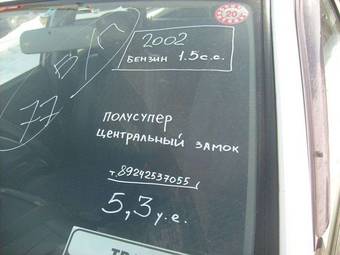 20
В/С
77
2002
БЕНЗИН 1.5 с.с.
ПОЛУСУПЕР
ЦЕНТРАЛЬНЫЙ ЗАМОК
т.89242537055
5,3 у.е.